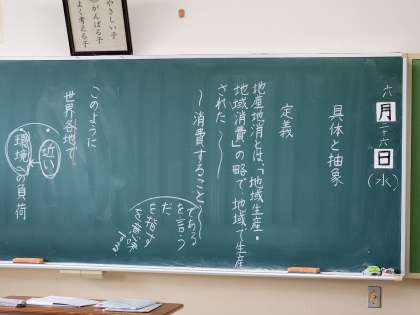 やさしい子
がんばる子
よく考える子
六月二十六日(水)
具体と抽象
定義
地産地消とは、「地域生産・
地域消費」の略で、地域で生産
された〜
〜消費すること〜
である
を言う
だ
を指す
を意味
する
このように
世界各地で
近い
環境への負荷